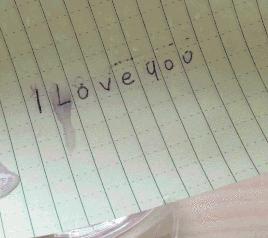 I Love yoo